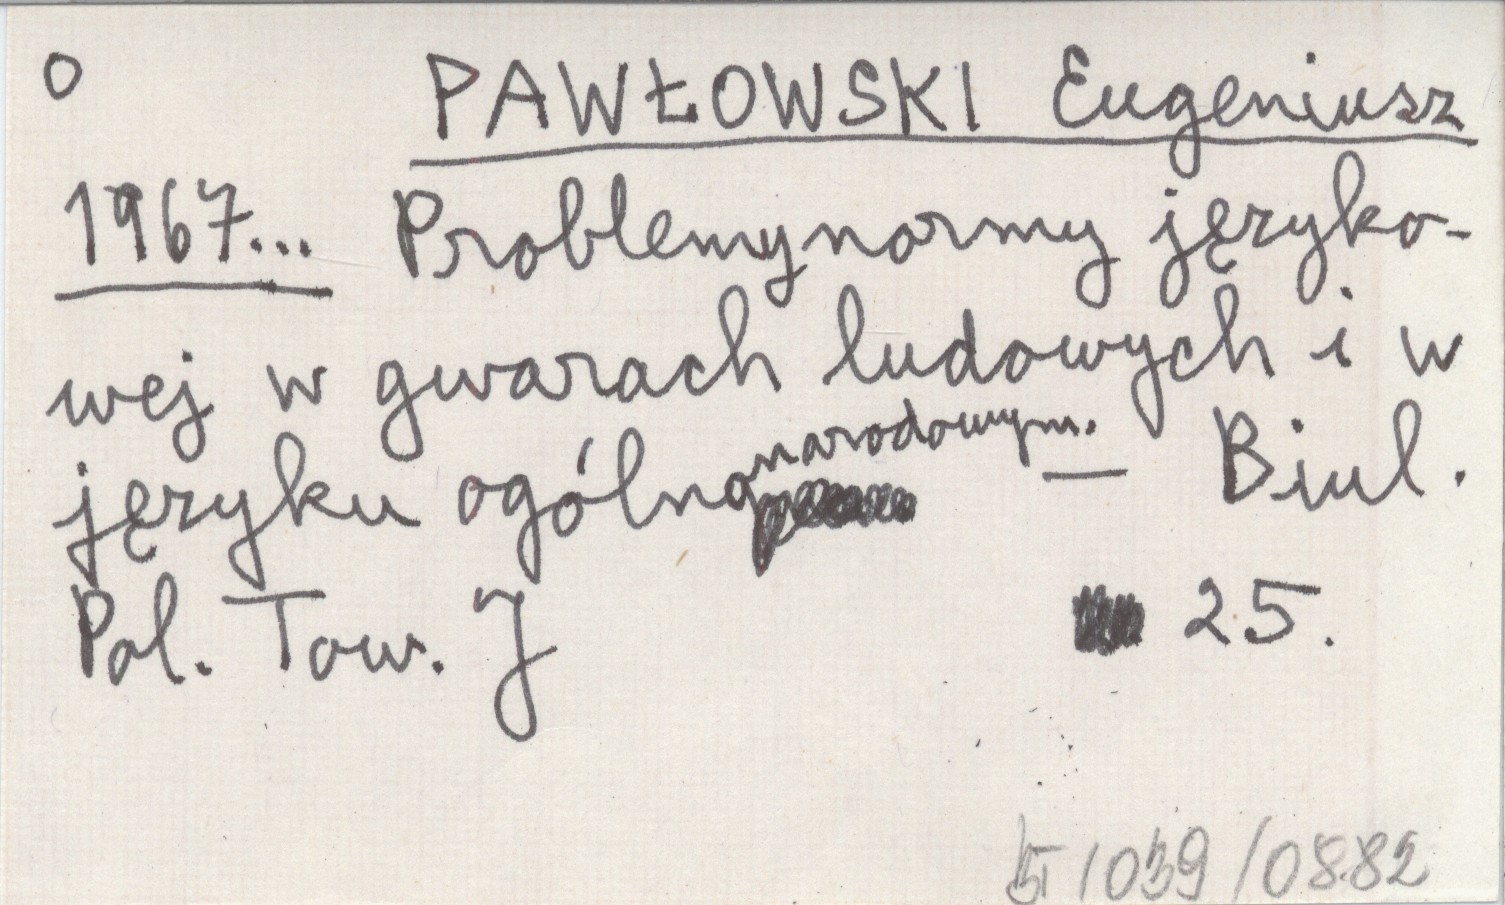 O PAWŁOWSKI Eugeniusz
1967... Problemy normy języko-
wej w gwarach ludowych i w
języku ogólnonarodowym. — Biul.
Pol. Tow. J 25.
1039/0882